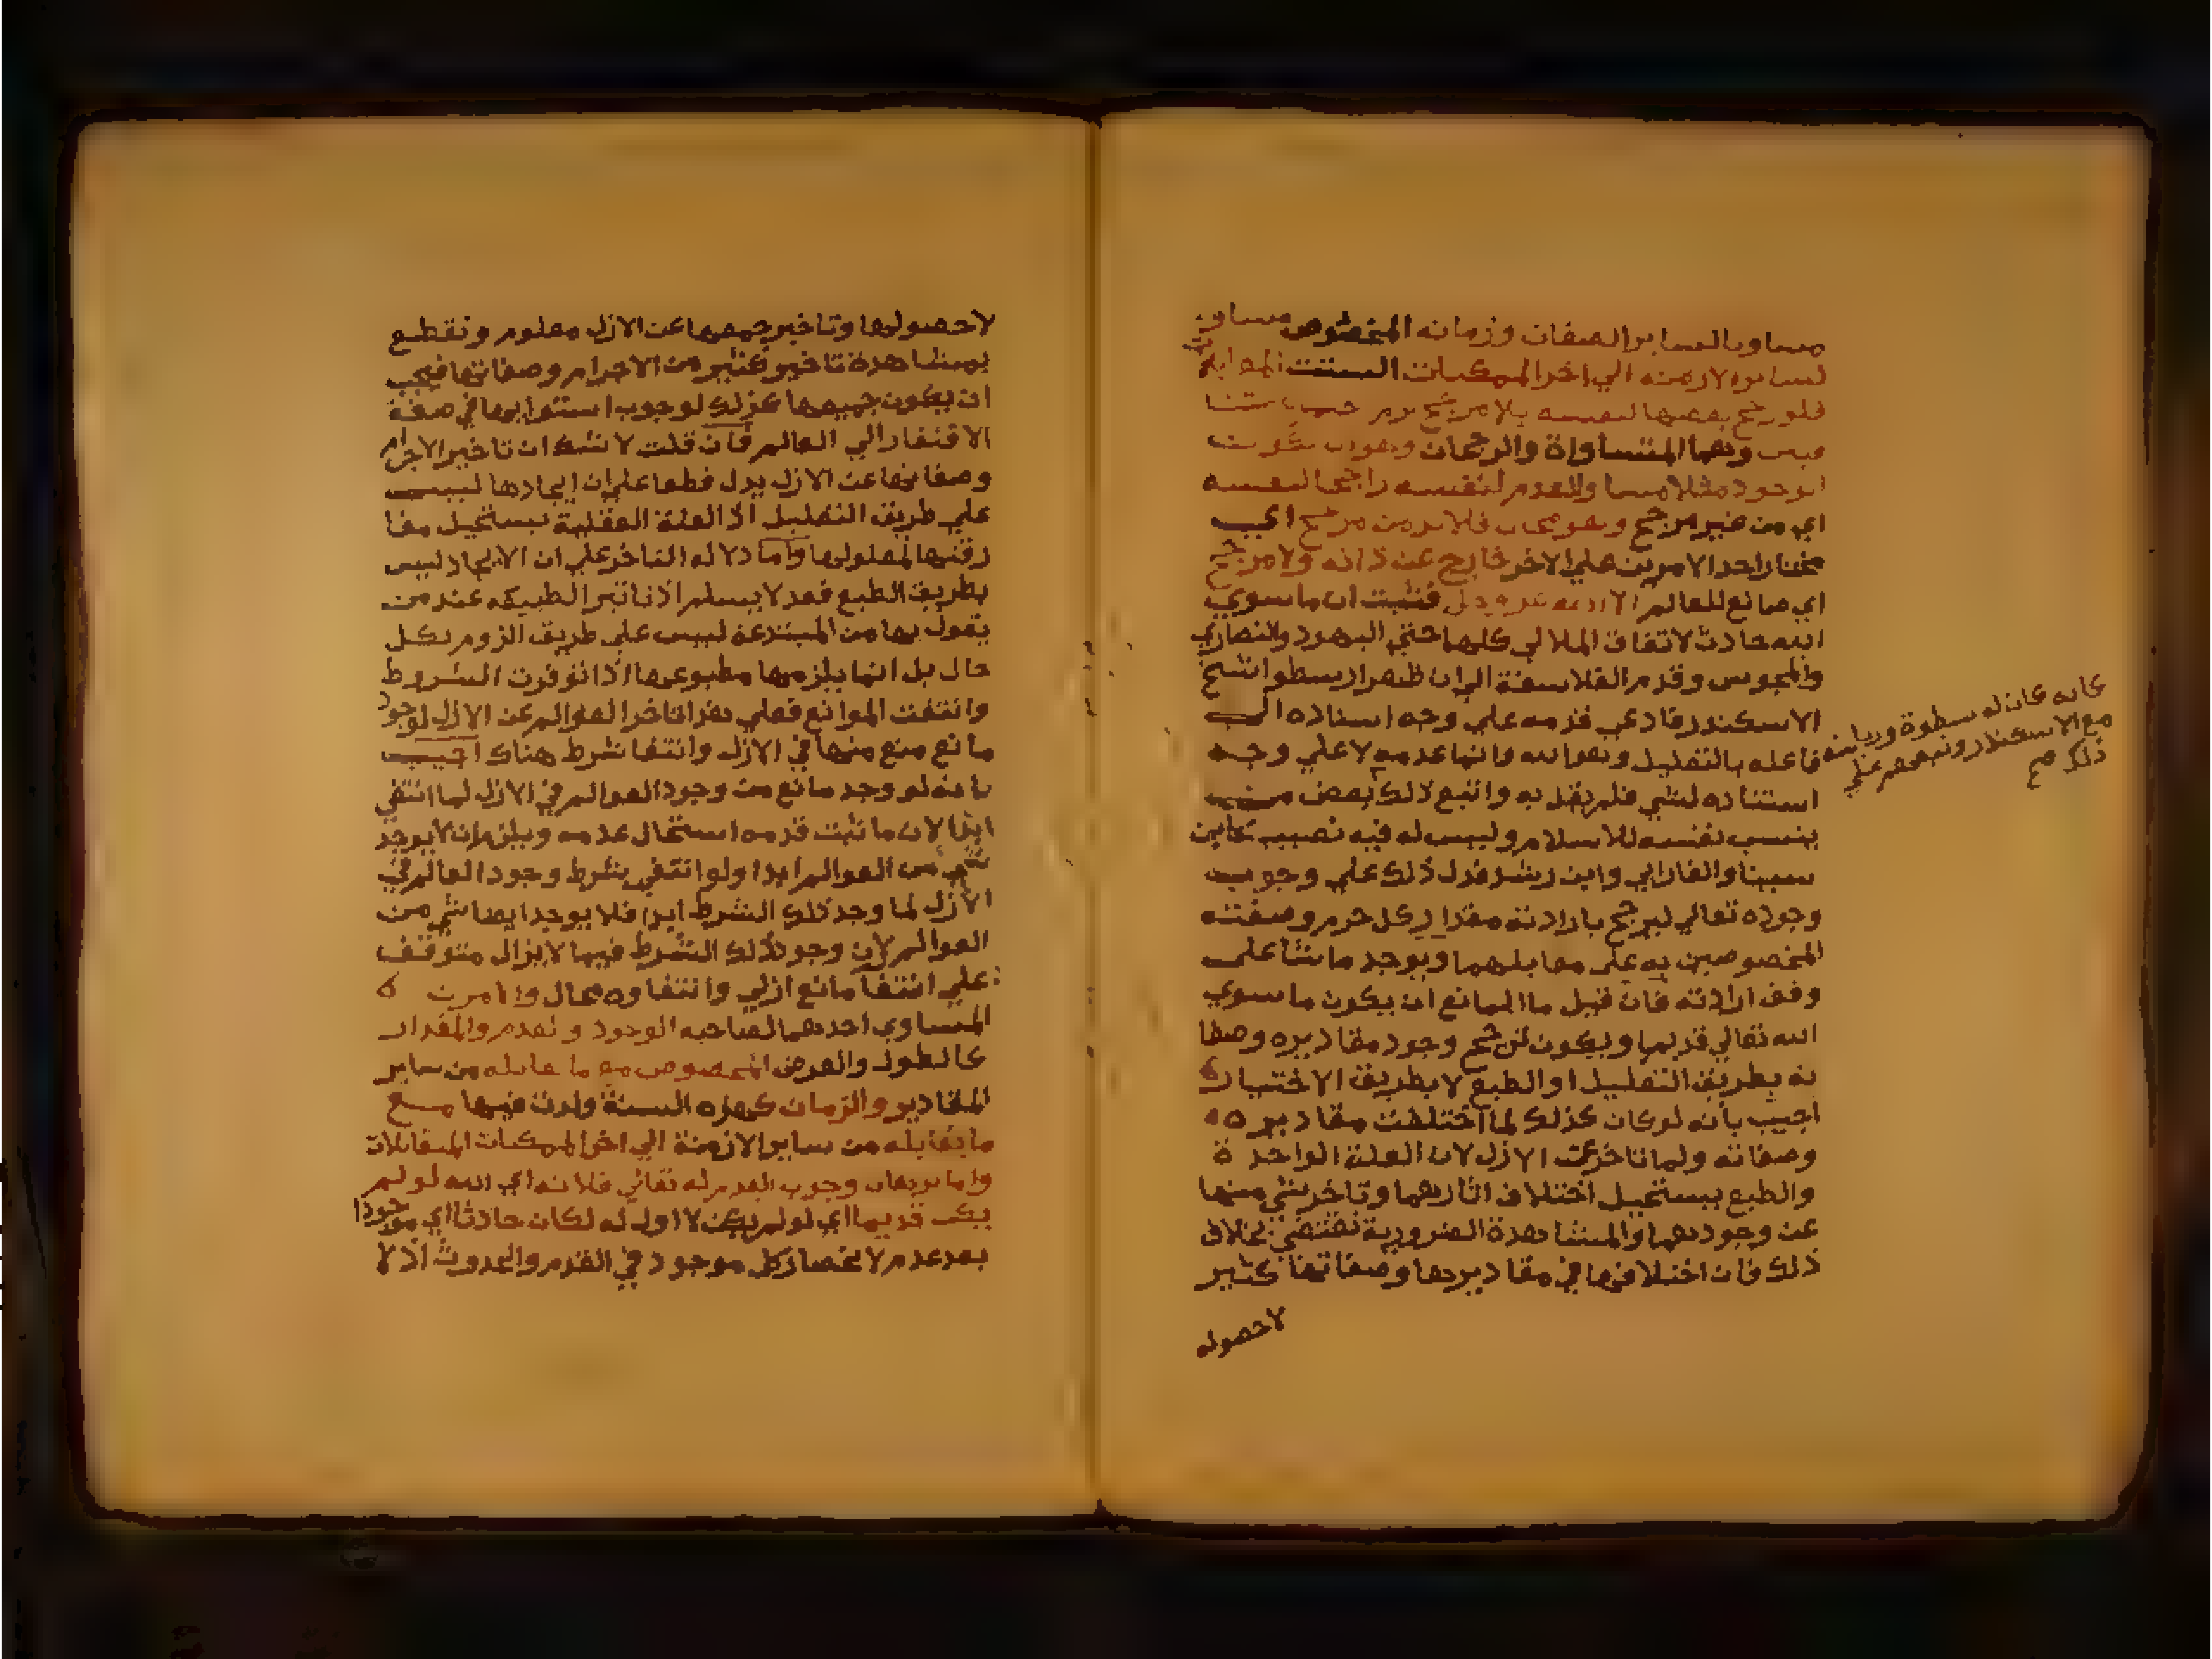 مساويا لساير الصفات وزمانه المخصوص مساو
لساير الازمنه الي اخر الممكنات الستت المقابلة
فلو رجح بعضها لنفسه بلا مرجح لزم
وهما المتساواة والرجحان وهو ان يكون
الوجود مثلا مساو للعدم لنفسه راجحا لنفسه
اي من غير مرجح وهو محال فلا بد من مرجح اي
مختار احد الامرين علي الاخر خارج عن ذاته ولا مرجح
اي صانع للعالم الا الله عز وجل فثبت ان ما سوي
الله حادث لاتفاق الملا لي كلها حتي اليهود والنصاري
والمجوس وقدم الفلاسفة الي ان ظهر ارسطو انشيخ
الاسكندر فادعي قدمه علي وجه اسناده الي
فاعله بالتعليل وهو الله وانما عدمه لا علي وجه
استناده لشي فلم يقل به واتبع ذلك بعض من
ينسب نفسه للاسلام وليس له فيه نصيب كابن
سينا والفارابي وابن رشد فدل ذلك علي وجوب
وجوده تعالي ليرجح بارادته مقدار كل جرم وصفته
المخصوصين به علي مقابلهما ويوجد ما شا علي
وفق ارادته فان قيل ما المانع ان يكون ما سوي
الله تعالي قديما ويكون ترجح وجود مقاديره وصفا
ته بطريق التعليل او الطبع لا بطريق الاختيار
اجيب بانه لو كان كذلك لما اختلفت مقاديره
وصفاته ولما تاخرت الازل لان العلة الواحدة
والطبع يستحيل اختلاف اثارهما وتاخر شي منها
عن وجودهما والمشاهدة الضرورية تقتضي بخلاف
ذلك فان اختلافها في مقاديرها وصفاتها كثير
لاحصوله
كانه كان له سطوة ورياسة
مع الاسكندر علي
ذلك صح
لاحصولها وتاخير جميعها عن الازل معلوم ونقطع
بمشاهدة تاخير كثير من الاجرام وصفاتها فيجب
ان يكون جميعها كذلك لوجوب استوايها في صفة
الافتقار الي العالم فان قلت لا شك ان تاخير الاجرام
وصفاتها عن الازل يدل قطعا علي ان ايجادها ليس
علي طريق التعليل اذ العلة العقلية يستحيل مفا
رقتها لمعلولها واما دلاله التاخر علي ان الايجاد ليس
بطريق الطبع فقد لا يسلم اذ تاثير الطبيعه عند من
يقول بها من المبتدعة ليس علي طريق الزوم بكل
حال بل انما يلزمها مطبوعها اذا توفرت الشروط
وانتفت الموانع فعلي هذا تاخر العوالم عن الازل لوجود
مانع منع منها في الازل وانتفا شرط هناك اجيب
بانه لو وجد مانع من وجود العوالم في الازل لما انتفي
ابدا لان ما ثبت قدمه استحال عدمه ويلزم ان لا يوجد
شي من العوالم ابدا ولو انتفي شرط وجود العالم في
الازل لما وجد ذلك الشرط ابدا فلا يوجد ايضا شي من
العوالم لان وجود ذلك الشرط فيما لا يزال متوقف
علي انتفا مانع ازلي وانتفاوه محال والامرين
المتساوي احدهما لصاحبه الوجود والعدم والمقدار
كالطول والعرض المخصوص مع ما قابله من ساير
المقادير والزمان كهذه السنة ولدت فيها مع
ما يقابله من ساير الازمنة الي اخر الممكنات المتقابلات
واما برهان وجوب القدم له تعالي فلانه اي الله لو لم
يكن قديما اي لو لم يكن لا اول له لكان حادثا اي موجودا
بعد عدم لانحصار كل موجود في القدم والحدوث اذ لا